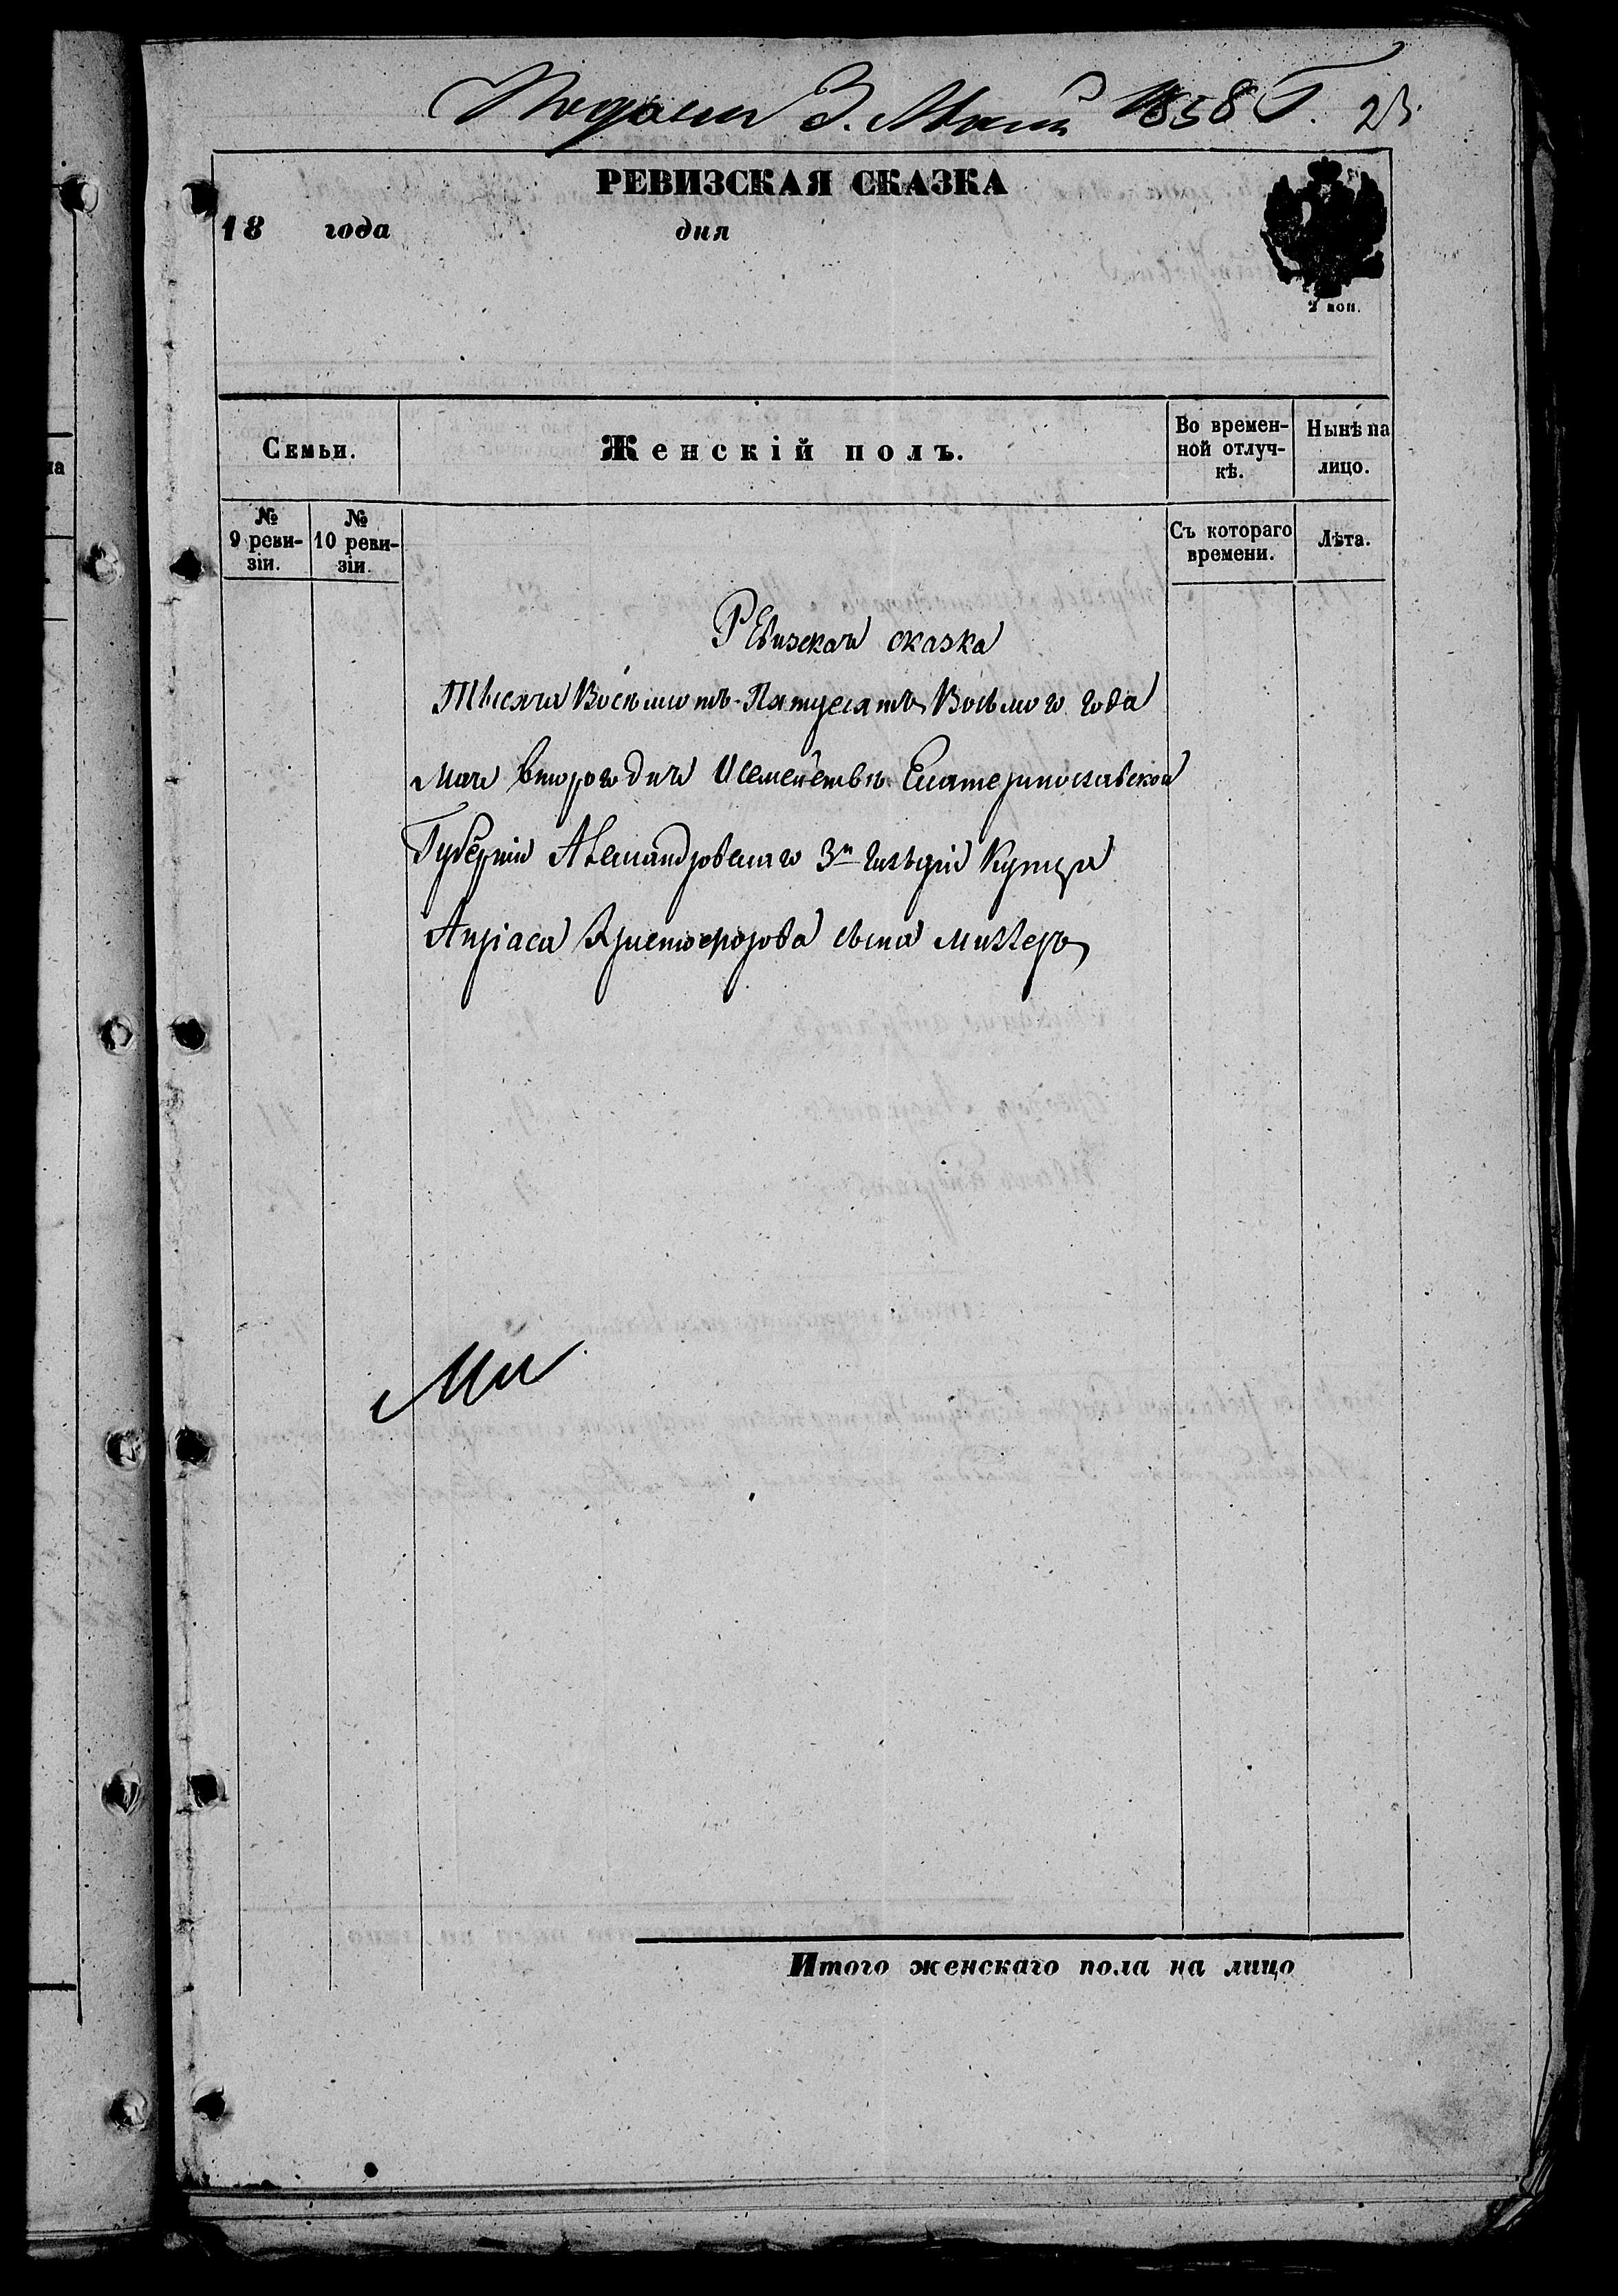 Подана 3. Мая 1858 Г. 23
РЕВИЗСКАЯ СКАЗКА
18 года дня
2 коп.
Семьи.
Женскій полъ.
Во времен-
ной отлуч-
кѣ.
Нынѣ на
лицо.
№
9 реви-
зіи.
№
10 реви-
зіи.
Съ котораго
времени.
Лѣта.
Ревизская сказка
Тысяча Восемьсотъ Пятдесятъ Восьмого года
мая второго дня Екатеринославской
Губерніи Александровскаго 3й гильдіи Купца
Христофорова сына Миллеръ
Ми
Итого женскаго пола на лицо